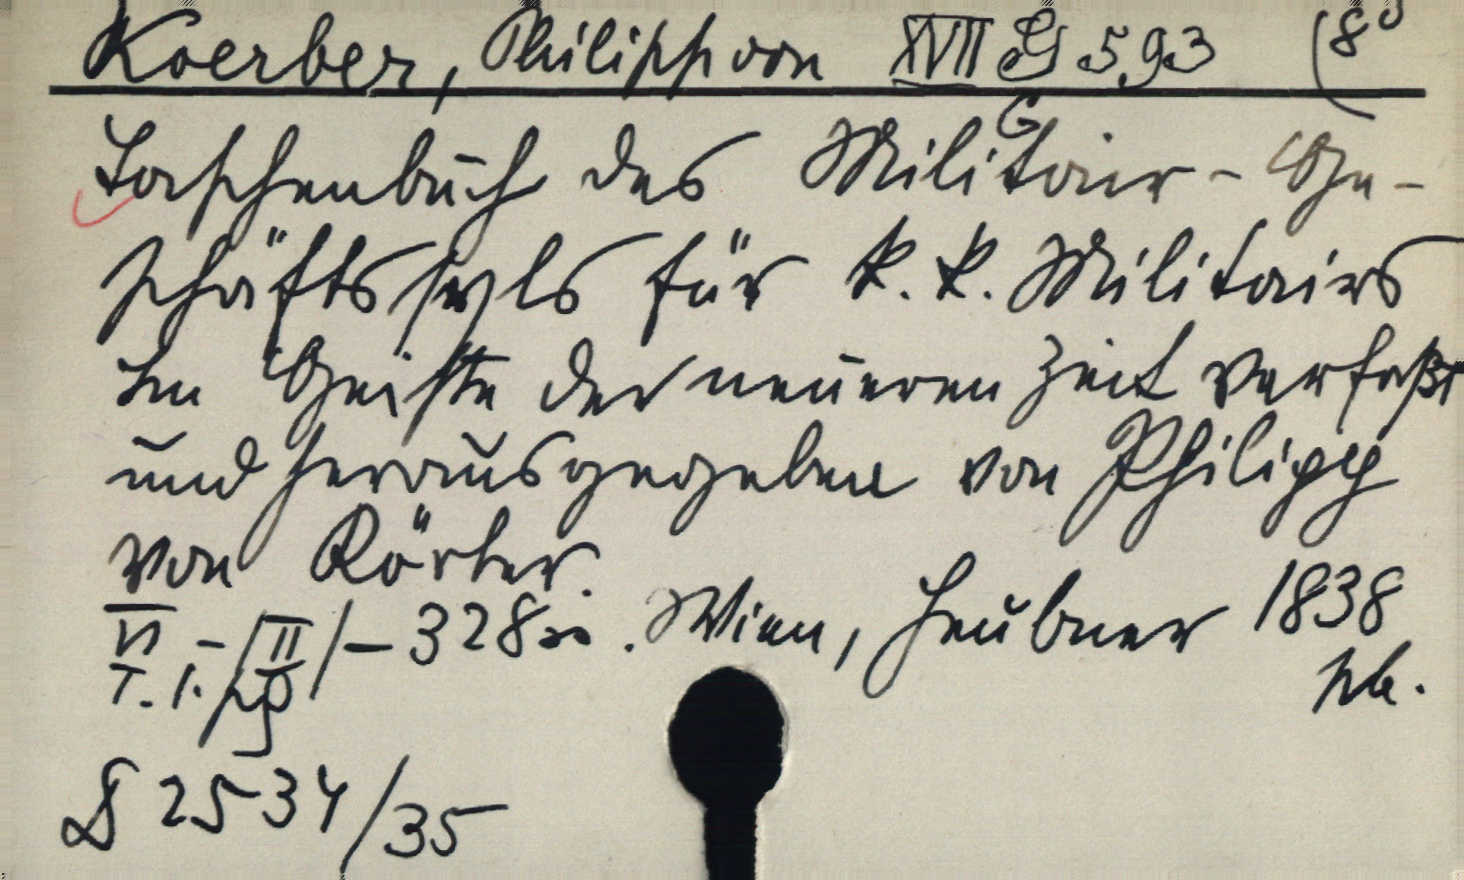 Koerber, Philipp von XVII G 593 (8°
G
Taschenbuch des Militair-Ge-
schäftsstyls für k. k. Militairs
Im Geiste der neueren Zeit verfaßt
und herausgegeben von Philipp
von Körber.
VI - II - 328 S. Wien, Heubner 1838
T. 1.
D 2534/35